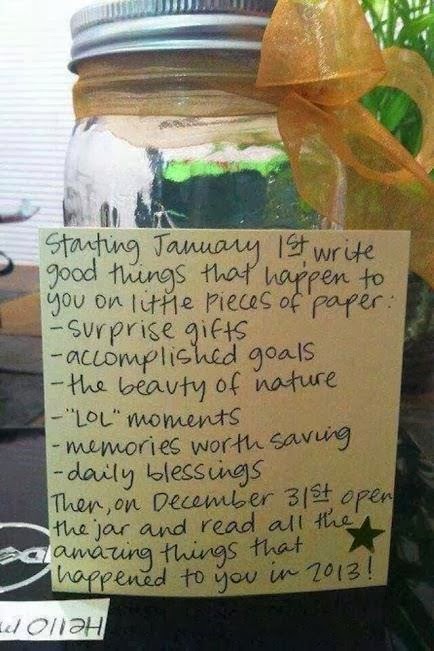 Starting January 1st, write
good things that happen to
you on little pieces of paper:
-surprise gifts
-accomplished goals
-the beauty of nature
-"LOL" moments
-memories worth saving
-daily blessings
Then, on December 31st, open
the jar and read all the
amazing things that
happened to you in 2013!
Hello m